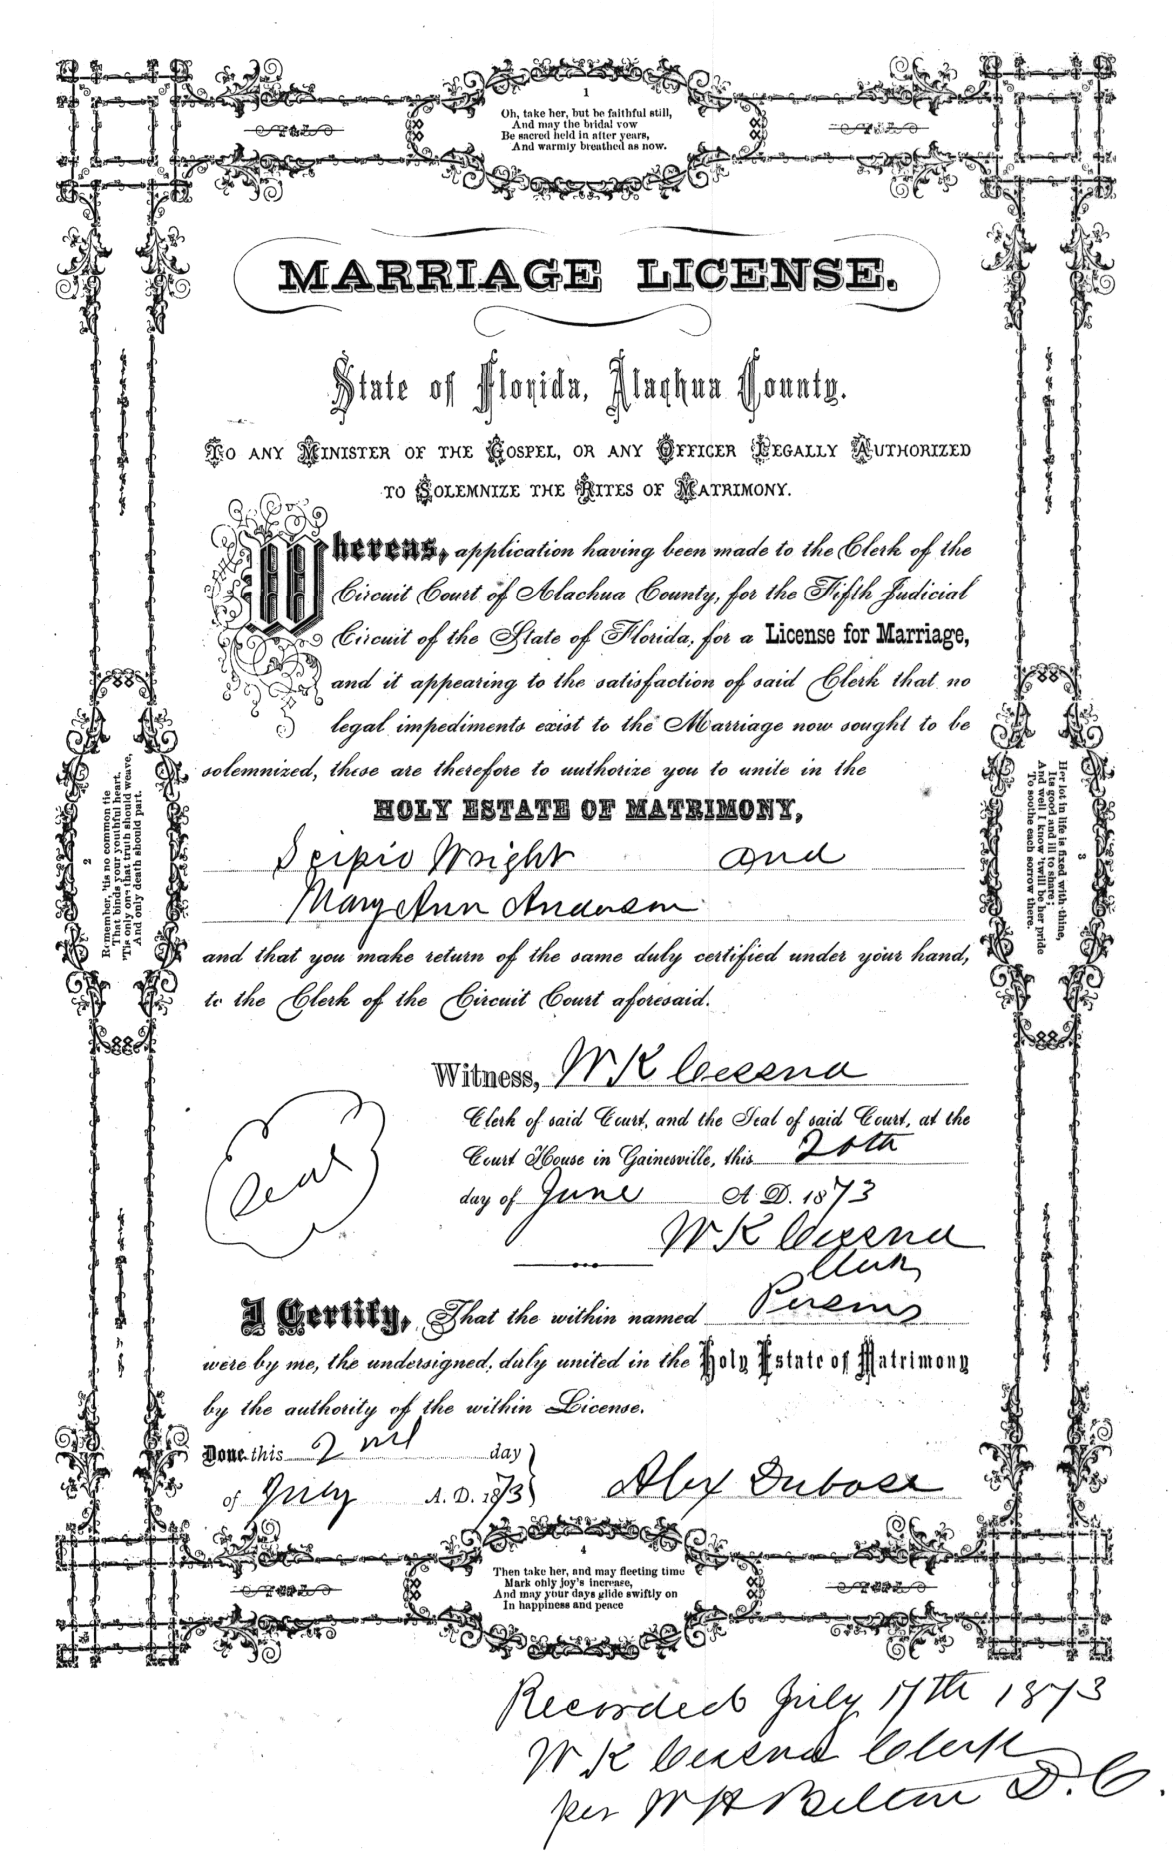 1
Oh, take her, but be faithful still,
And may the bridal vow
Be sacred held in after years,
And warmly breathed as now.
MARRIAGE LICENSE.
State of Florida, Alachua County.
TO ANY MINISTER OF THE GOSPEL, OR ANY OFFICER LEGALLY AUTHORIZED
TO SOLEMNIZE THE RITES OF MATRIMONY.
Whereas, application having been made to the Clerk of the
Circuit Court of Alachua County, for the Fifth Judicial
Circuit of the State of Florida, for a License for Marriage,
and it appearing to the satisfaction of said Clerk that no
legal impediments exist to the Marriage now sought to be
solemnized, these are therefore to authorize you to unite in the
HOLY ESTATE OF MATRIMONY,
Scipio Wright and
Mary Ann Anderson
and that you make return of the same duly certified under your hand,
to the Clerk of the Circuit Court aforesaid.
2
Remember, 'tis no common tie
That binds your youthful heart,
'Tis only one that truth should weave,
And only death should part.
3
Her lot in life is fixed with thine,
Its good and ill to share;
And well I know 'twill be her pride
To soothe each sorrow there.
Witness, W K Cessna
Clerk of said Court, and the Seal of said Court, at the
Court House in Gainesville, this 20th
day of June A. D. 1873
Seal
W K Cessna
Clerk
I Certify, That the within named Persons
were by me, the undersigned, duly united in the Holy Estate of Matrimony
by the authority of the within License.
Done this 2nd day
of July A. D. 1873
Alex Dubose
4
Then take her, and may fleeting time
Mark only joy's increase,
And may your days glide swiftly on
In happiness and peace
Recorded July 17th 1873
W K Cessna Clerk
per W H Belton D. C.